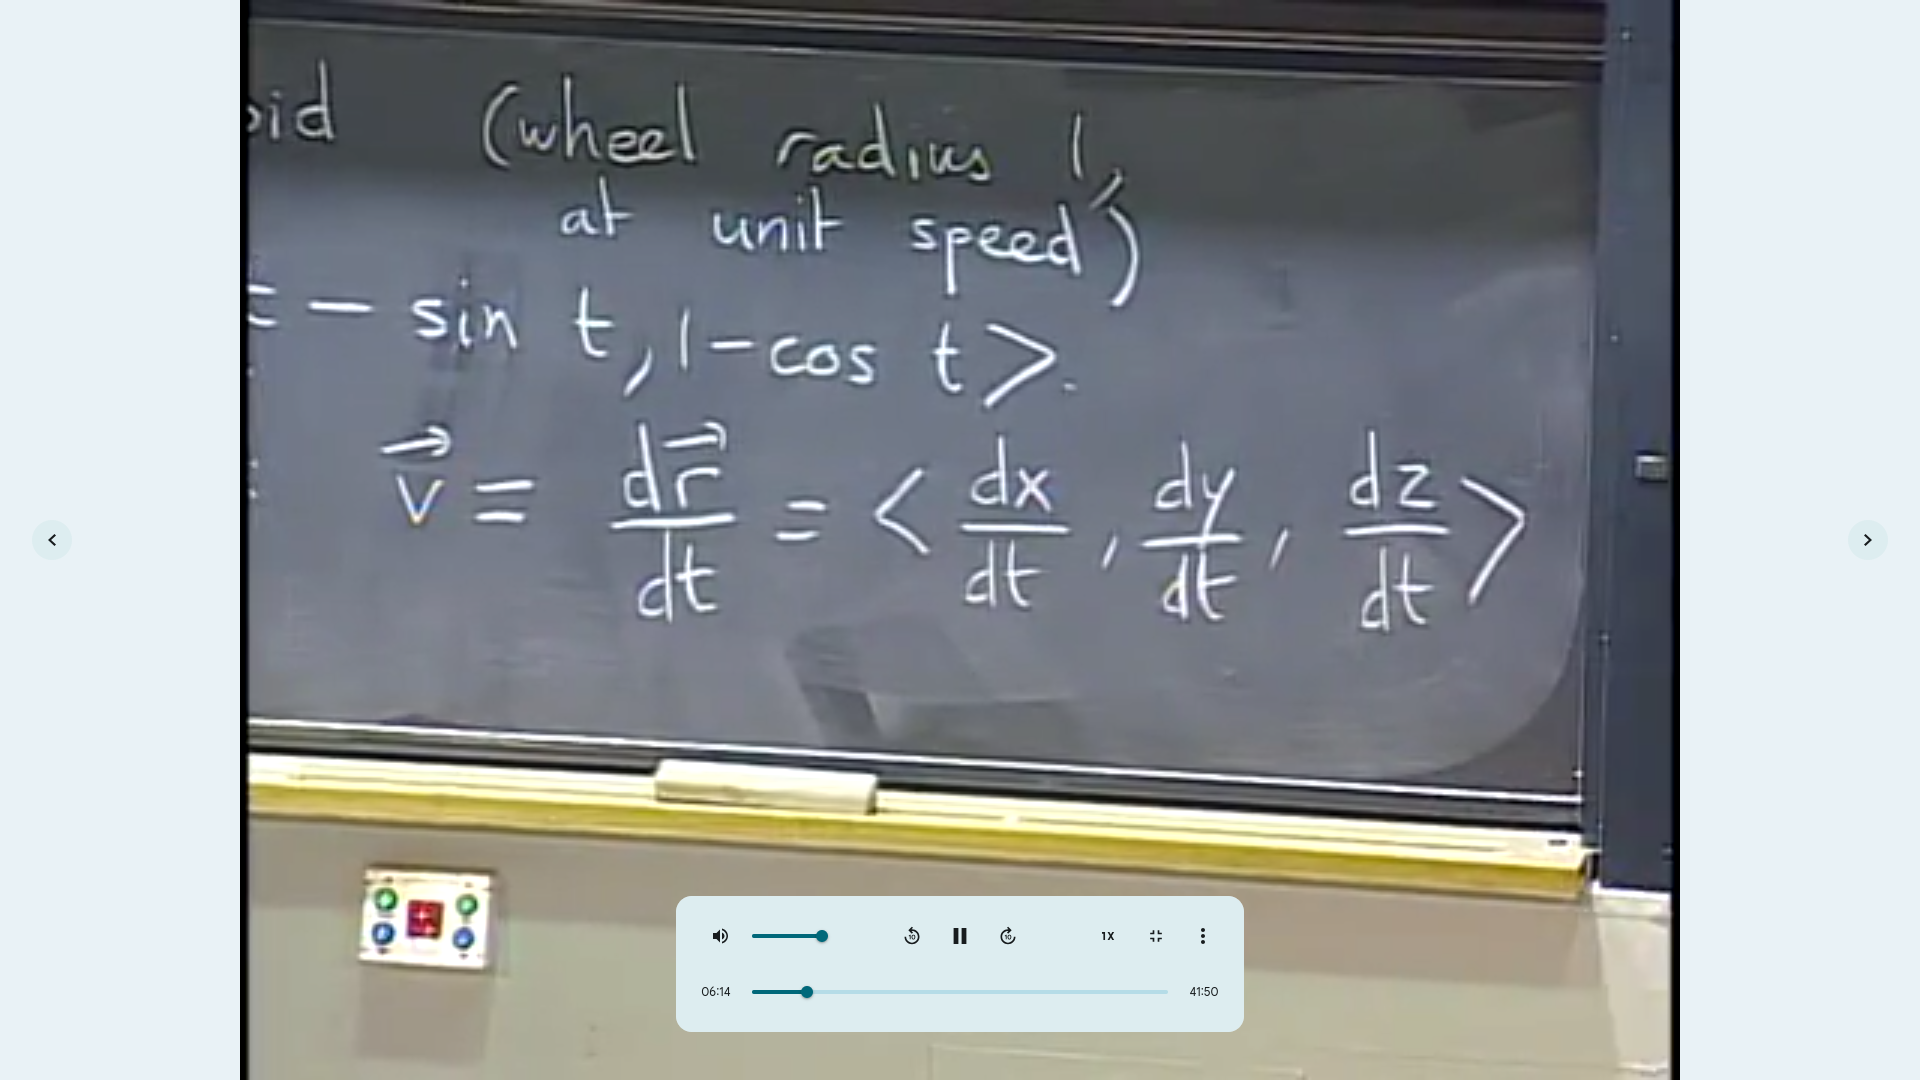 oid (wheel radius 1,
at unit speed)
t - sin t, 1-cos t>.
v⃗ = dr⃗/dt = <dx/dt, dy/dt, dz/dt>
10 10 1X
06:14 41:50